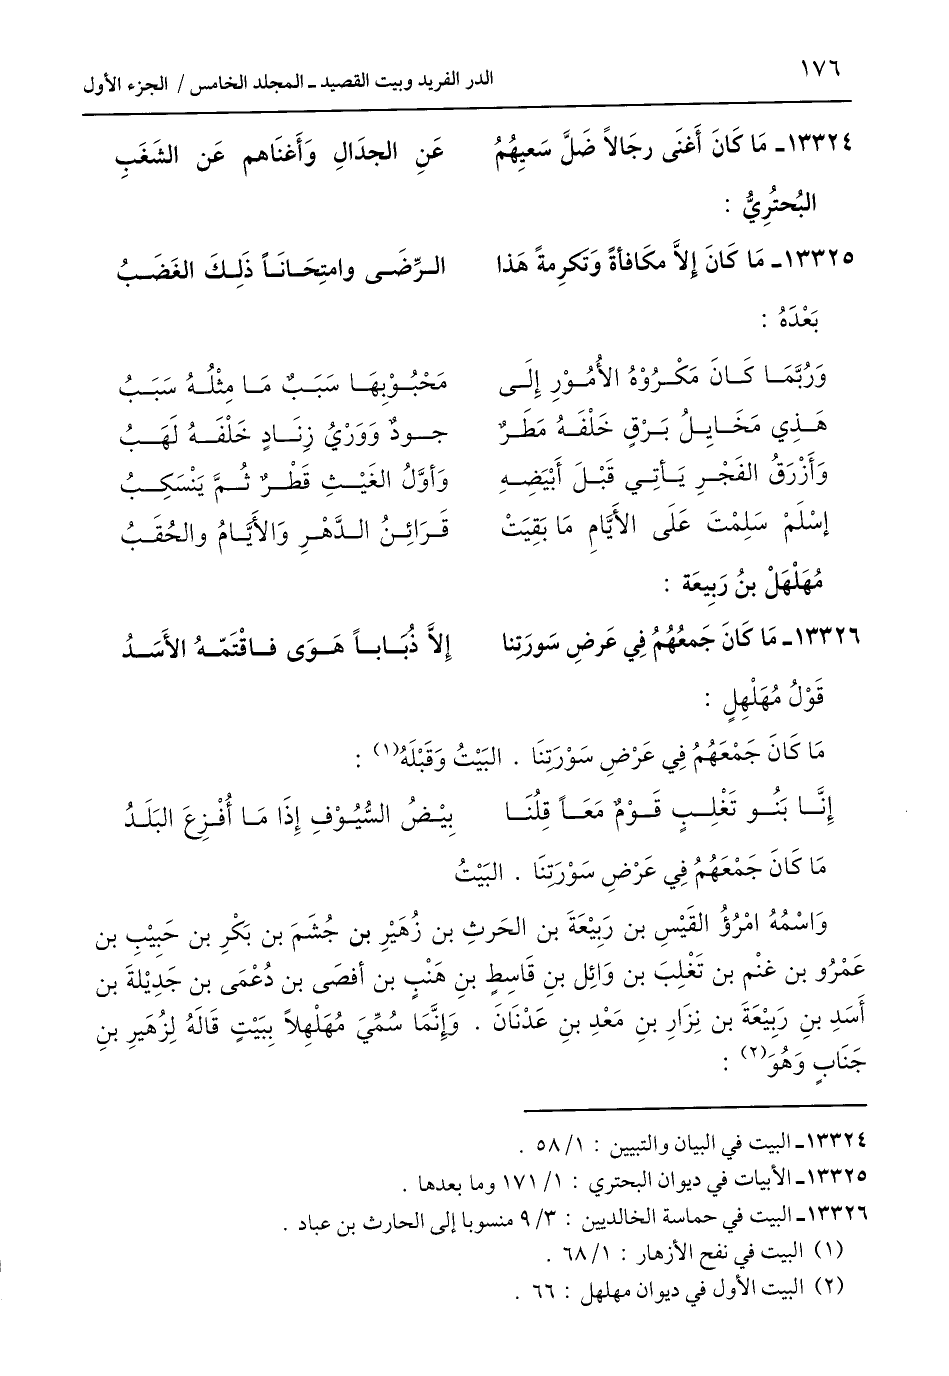 ١٧٦
الدر الفريد وبيت القصيد ـ المجلد الخامس / الجزء الأول
١٣٣٢٤ـ مَا كَانَ أَغنَى رجَالاً ضَلَّ سَعيهُمُ عَنِ الجدَالِ وَأَغنَاهم عَن الشَغَبِ
البُحتُرِيُّ :
١٣٣٢٥ـ مَا كَانَ إلاَّ مكَافأةً وَتَكرِمةً هَذا الرِّضَى وامتِحَاناً ذَلِكَ الغَضَبُ
بَعْدَهُ :
وَرُبَّمَا كَانَ مَكْرُوْهُ الأُمُوْرِ إلَى مَحْبُوْبِهَا سَبَبٌ مَا مِثْلُهُ سَبَبُ
هَذِي مَخَايِلُ بَرْقٍ خَلْفَهُ مَطَرٌ جودٌ وَوَرْيُ زِنَادٍ خَلْفَهُ لَهَبُ
وَأَزْرَقُ الفَجْرِ يَأتِي قَبْلَ أَبْيَضِهِ وَأوَّلُ الغَيْثِ قَطْرٌ ثُمَّ يَنْسَكِبُ
إسْلَمْ سَلِمْتَ عَلَى الأيَّامِ مَا بَقِيَتْ قَرَائِنُ الدَّهْرِ وَالأيَّامُ والحُقَبُ
مُهَلْهَلْ بنُ رَبِيعَة :
١٣٣٢٦ـ مَا كَانَ جَمعُهُمُ فِي عَرضِ سَورَتِنا إلاَّ ذُبَاباً هَوَى فَاقْتَمّهُ الأسَدُ
قَوْلُ مُهَلْهِلٍ :
مَا كَانَ جَمْعَهُمُ فِي عَرْضِ سَوْرَتِنَا . البَيْتُ وَقَبْلَهُ(١) :
إنَّا بَنُو تَغْلِبٍ قَوْمٌ مَعَاً قِلُنَا بِيْضُ السُّيُوْفِ إذَا مَا أُفْزِعَ البَلَدُ
مَا كَانَ جَمْعَهُمُ فِي عَرْضِ سَوْرَتِنَا . البَيْتُ
وَاسْمُهُ امْرُؤُ القَيْسِ بن رَبِيْعَةَ بن الحَرثِ بن زُهَيْرِ بن جُشَمَ بن بَكْرِ بن حَبِيْبِ بن
عَمْرُو بن غنْم بن تَغْلِبَ بن وَائِل بن قَاسِطِ بن هَنْبِ بن أَفصَى بن دُعْمَى بن جَدِيْلَةَ بن
أَسَدِ بنِ رَبِيْعَةَ بن نِزَارِ بنِ مَعْدِ بنِ عَدْنَانَ . وَإنَّمَا سُمِّيَ مُهَلْهِلاً بِبَيْتٍ قَالَهُ لِزُهَيرِ بنِ
جَنَابٍ وَهُوَ(٢) :
١٣٣٢٤ـ البيت في البيان والتبيين : ١/ ٥٨ .
١٣٣٢٥ـ الأبيات في ديوان البحتري : ١/ ١٧١ وما بعدها .
١٣٣٢٦ـ البيت في حماسة الخالديين : ٣/ ٩ منسوبا إلى الحارث بن عباد .
(١) البيت في نفح الأزهار : ١/ ٦٨ .
(٢) البيت الأول في ديوان مهلهل : ٦٦ .